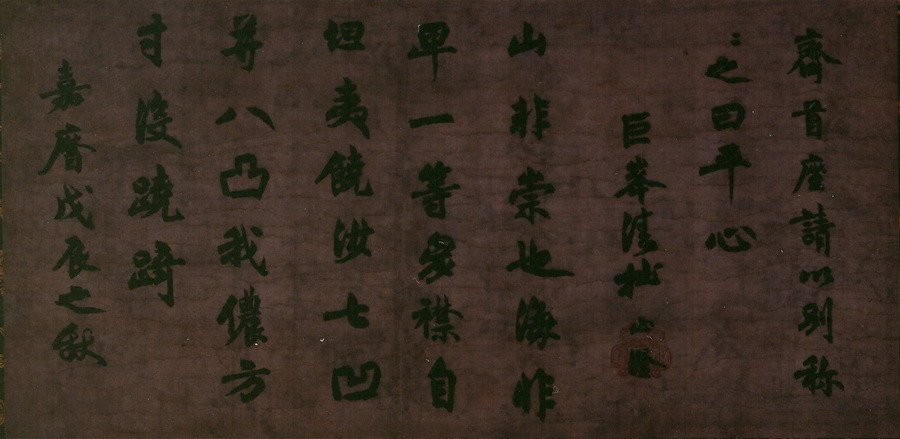 齊首座請以別称
〻之曰平心
巨峯清拙
山非崇也海非
卑一等胷襟自
坦夷饒汝七凹
并八凸我儂方
寸没蹺踦
嘉曆戊辰之秋